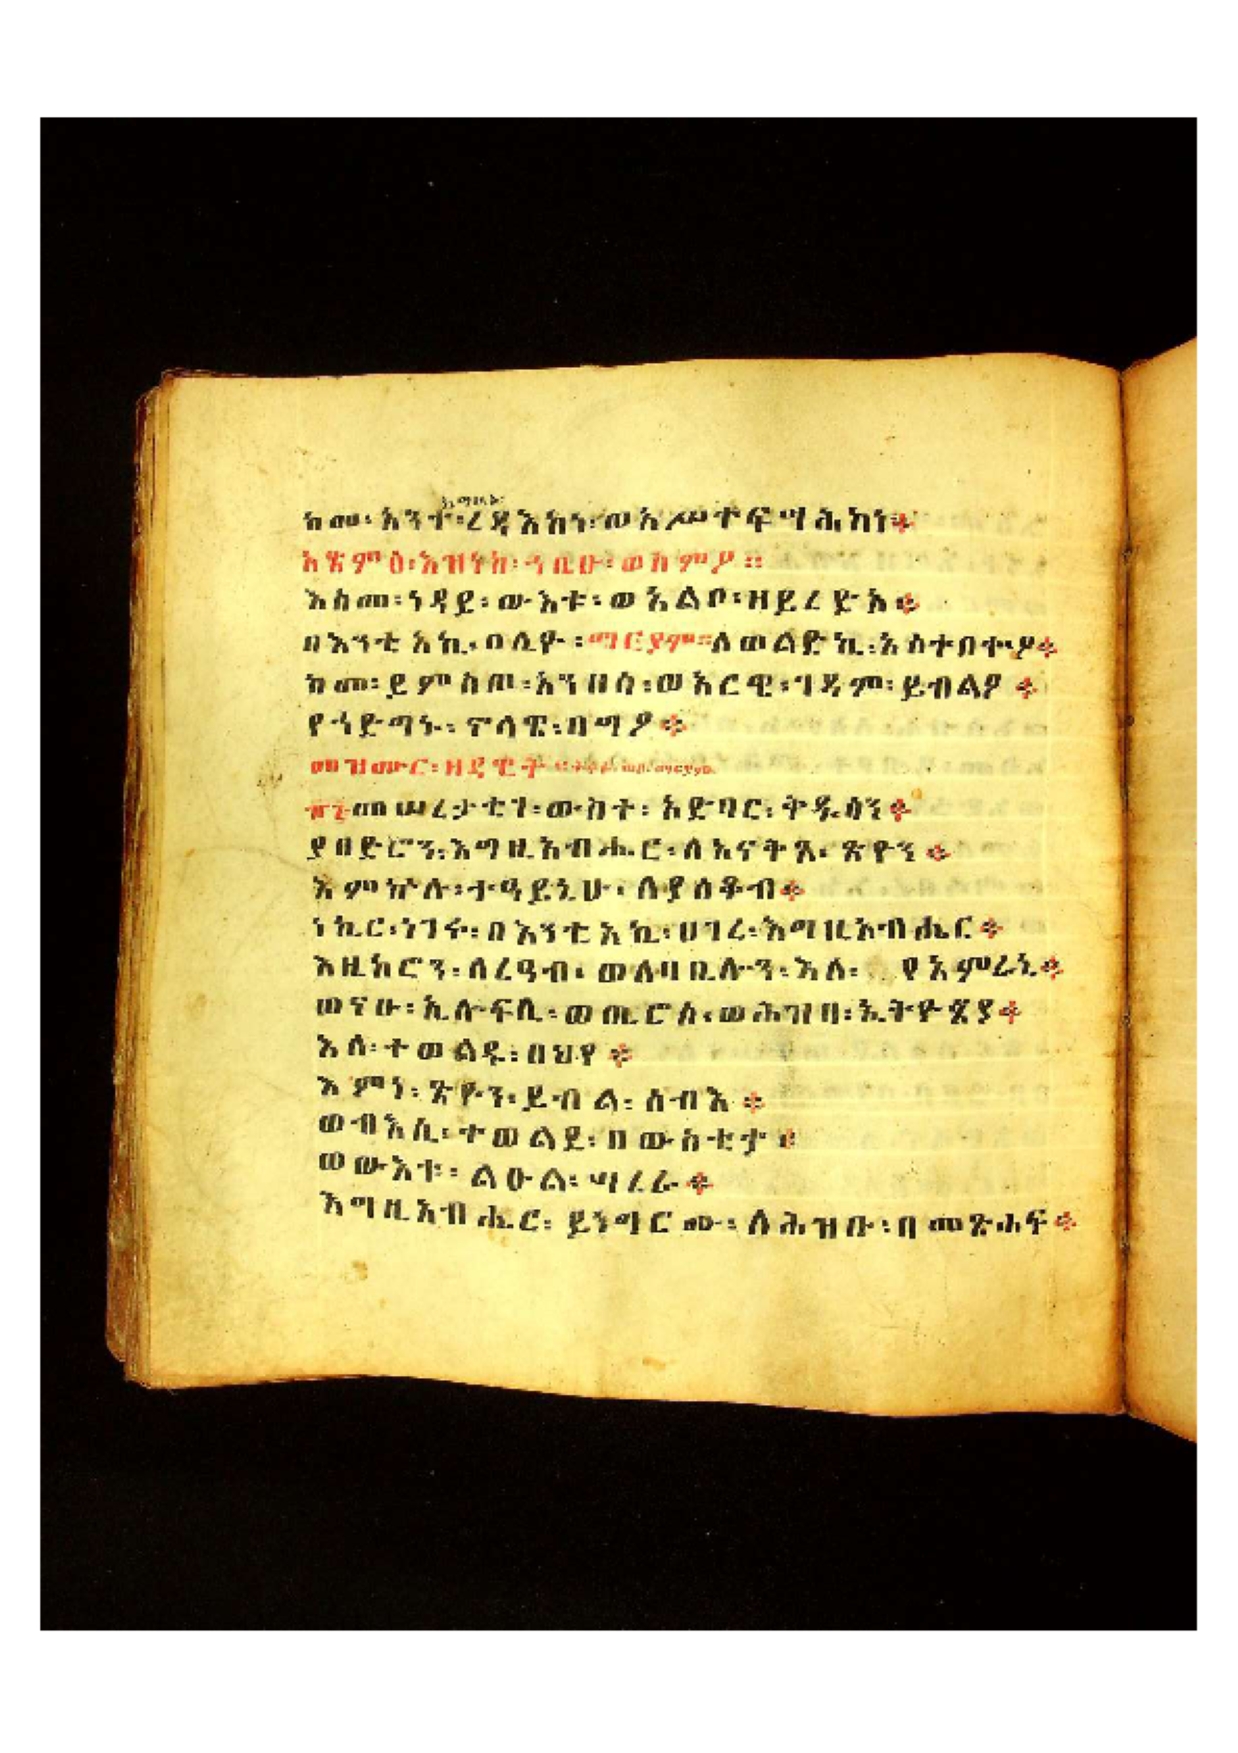 እግዚኦ፡
ከመ፡ አንተ፡ ረዳእከነ፡ ወአሥተፍሣሕከነ።
አጽምዕ፡ እዝነከ፡ ኀቤሁ፡ ወስምዖ።
እስመ፡ ነዳይ፡ ውእቱ፡ ወአልቦ፡ ዘይረድአ።
በእንቲአኪ፡ ማርያም። ለወልድኪ፡ አስተበቍዖ።
ከመ፡ ይምስጦ፡ አንበሳ፡ ወአርዌ፡ ገዳም፡ ይብልዖ።
የኀድግኑ፡ ኖላዊ፡ በግዖ።
መዝሙር፡ ዘዳዊት።
፹፮ መሠረታቲሃ፡ ውስተ፡ አድባር፡ ቅዱሳን።
ያበድሮን፡ እግዚአብሔር፡ ለአናቅጸ፡ ጽዮን።
እምኵሉ፡ ተዓይኒሁ፡ ለያዕቆብ።
ነኪር፡ ነገሩ፡ በእንቲአኪ፡ ሀገረ፡ እግዚአብሔር።
እዜከሮን፡ ለረዓብ፡ ወለባቢሎን፡ እለ፡ የአምራኒ።
ወናሁ፡ ኢሎፍሊ፡ ወጢሮስ፡ ወሕዝበ፡ ኢትዮጵያ።
እለ፡ ተወልዱ፡ በህየ።
እምነ፡ ጽዮን፡ ይብል፡ ሰብእ።
ወብእሲ፡ ተወልደ፡ በውስቴታ።
ወውእቱ፡ ልዑል፡ ሣረራ።
እግዚአብሔር፡ ይነግሮሙ፡ ለሕዝቡ፡ በመጽሐፍ።